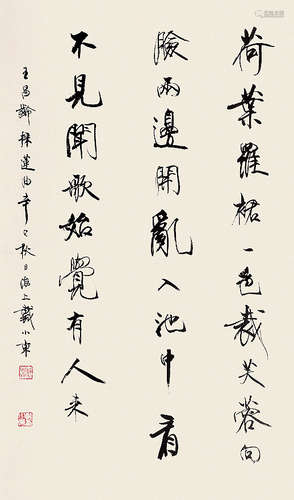 荷葉羅裙一色裁芙蓉向
臉兩邊開亂入池中看
不見聞歌始覺有人来
王昌齡採蓮曲辛巳秋日海上戴小京